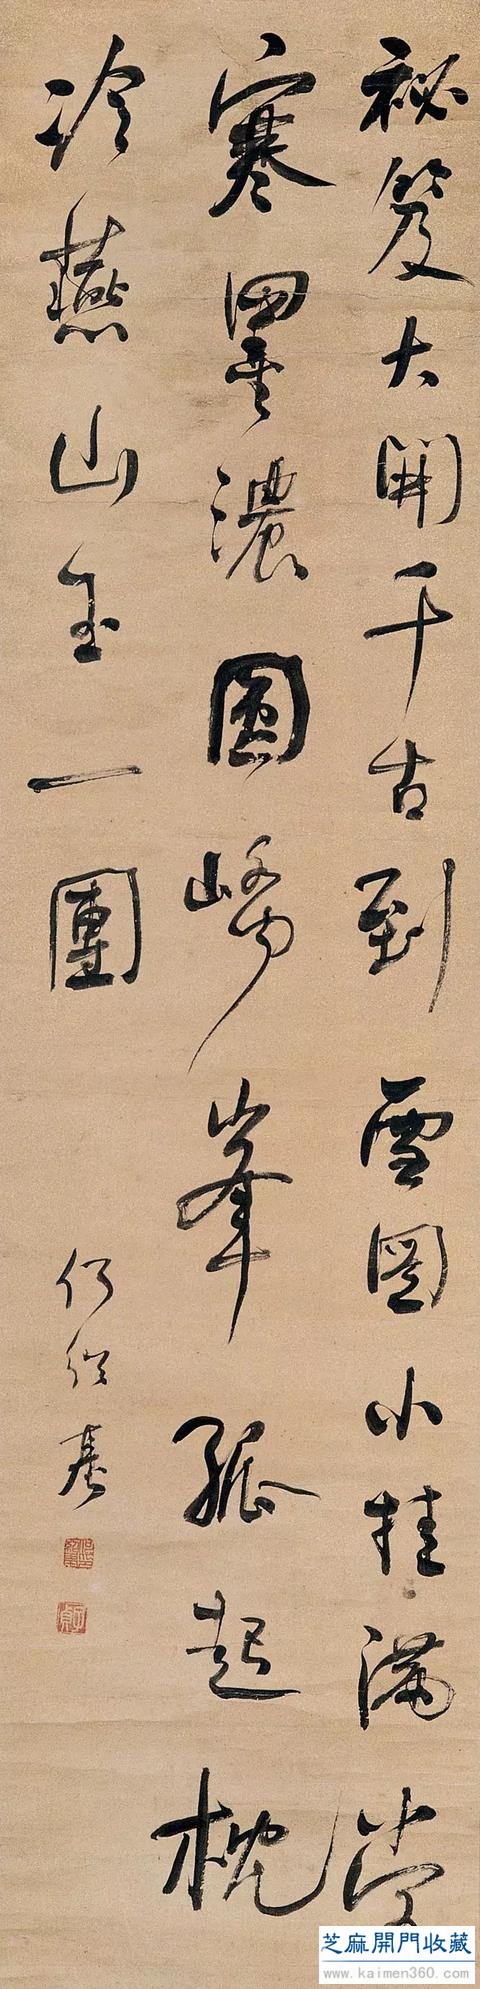 秘笈大開千古到雪圖小挂滿堂
寒墨濃圓嶠峯孤起枕
冷燕山玉一團
何紹基
子貞
芝麻開門收藏
www.kaimen360.com